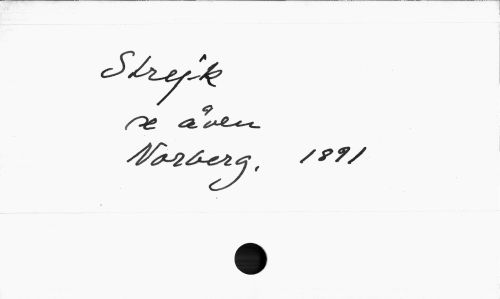 Strejk
se även
Norberg. 1891